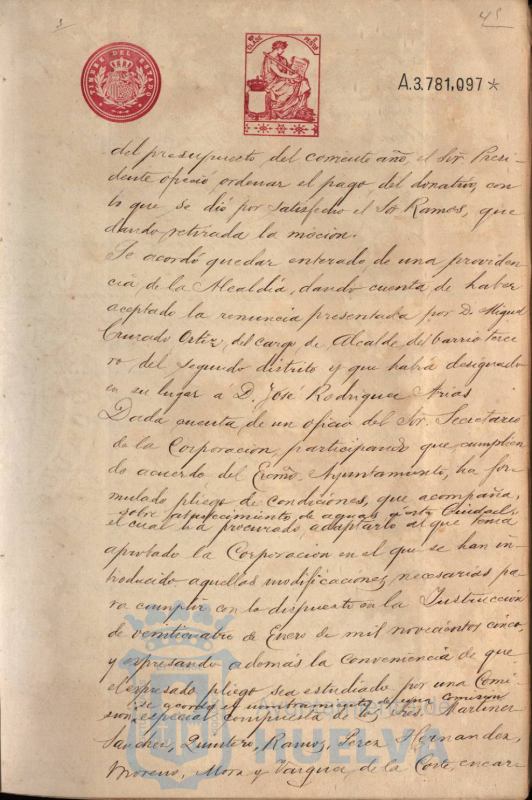 45
TIMBRE DEL ESTADO
CLASE
A.3.781,097 *
del presupuesto del corriente año, el Sor. Presi-
dente ofreció ordenar el pago del donativo, con
lo que se dió por satisfecho el Sr. Ramos, que
dando retirada la moción.
Se acordó quedar enterado de una providen
cia de la Alcaldía, dando cuenta de haber
aceptado la renuncia presentada por D. Miguel
Cruzado Ortiz, del cargo de Alcalde del barrio terce
ro, del segundo distrito y que habrá designado
en su lugar á D. José Rodriguez Arias
Dada cuenta de un oficio del Sor. Secretario
de la Corporación, participando que cumplien
do acuerdo del Excmo. Ayuntamiento, ha for
mulado pliego de condiciones, que acompaña,
sobre abastecimiento de aguas a esta Ciudad,
el cual ha procurado adaptarlo al que tenia
aprobado la Corporación en el que se han in
troducido aquellas modificaciones necesarias pa
ra cumplir con lo dispuesto en la Instrucción
de veinticuatro de Enero de mil novecientos cinco
y expresando además la conveniencia de que
el expresado pliego sea estudiado por una Comi
se acordó el nombramiento de una Comision
sion especial compuesta de los Sres. Martinez
Sanchez, Quintero, Ramos, Perez Hernandez,
Moreno, Mora y Vazquez de la Corte, encare
HUELVA